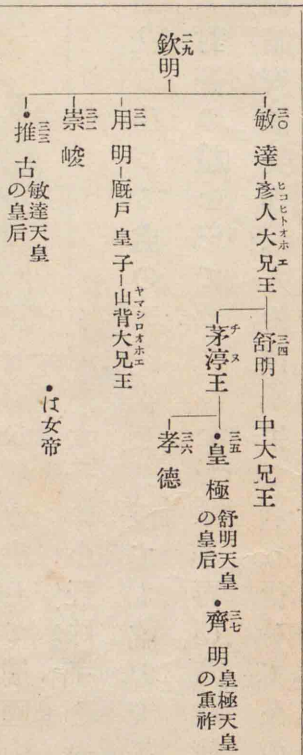 二九 欽明
三〇 敏達 彥人大兄王 ヒコヒトオホエ
三四 舒明 中大兄王
茅渟王 チヌ
三五 ・皇極 舒明天皇の皇后
三七 ・齊明 皇極天皇の重祚
三六 孝德
三一 用明 厩戶皇子 山背大兄王 ヤマシロオホエ
三二 崇峻
三三 ・推古 敏達天皇の皇后
・は女帝